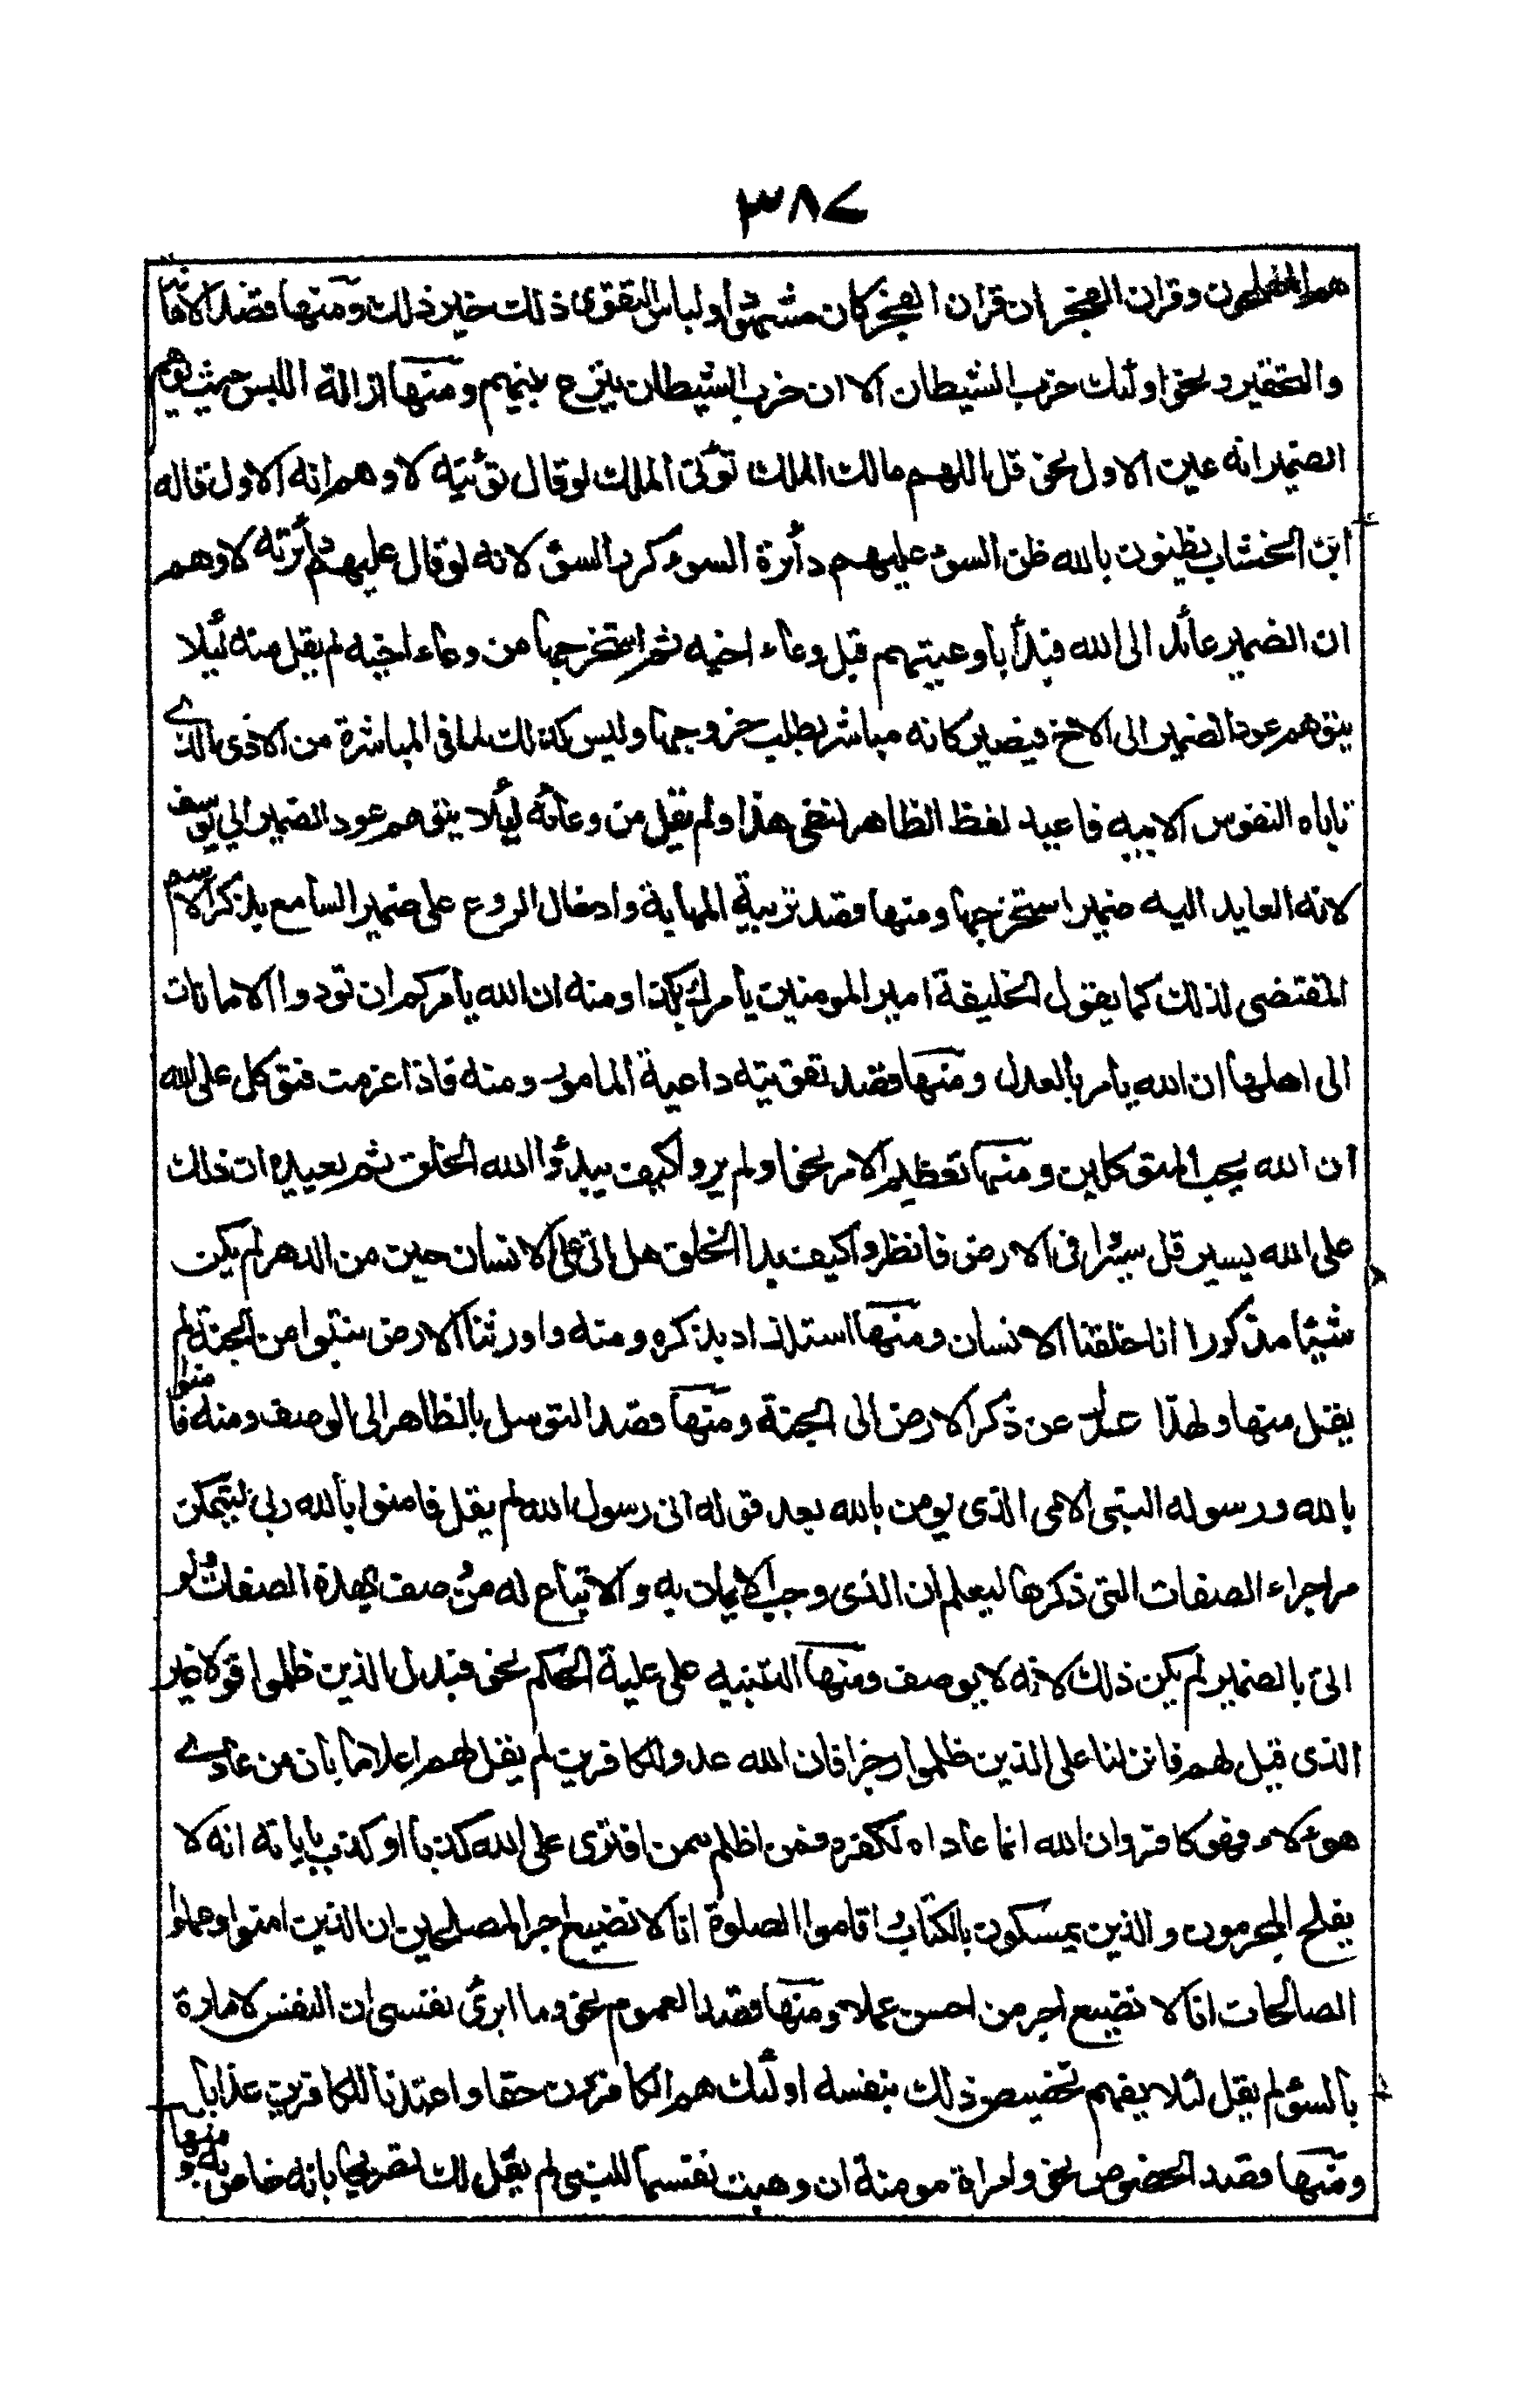 ٣٨٧
هم المفلحون وقران الفجر ان قران الفجر كان مشهودا ولباس التقوى ذلك خير ذلك ومنها قصد الاهانة
والتحقير نحو اولئك حزب الشيطان الا ان حزب الشيطان ينزع بينهم ومنها ازالة اللبس حيث يوهم
الضمير انه عين الاول نحو قل اللهم مالك الملك تؤتى الملك لو قال تؤتيه لاوهم انه الاول قاله
ابن الخشاب يظنون بالله ظن السوء عليهم دائرة السوء كرر السوء لانه لو قال عليهم دائرته لاوهم
ان الضمير عائد الى الله فبدأ باوعيتهم قبل وعاء اخيه ثم استخرجها من وعاء اخيه لم يقل منه ليلا
يتوهم عود الضمير الى الاخ فيصير كانه مباشر بطلب خروجها وليس كذلك لما فى المباشرة من الاذى الذى
تاباه النفوس الابيه فاعيد لفظ الظاهر لنفى هذا ولم يقل من وعائه ليلا يتوهم عود الضمير الى يوسف
لانه العايد اليه ضمير استخرجها ومنها قصد تربية المهابة وادخال الروع على ضمير السامع بذكر الاسم
المقتضى لذلك كما يقول الخليفة امير المومنين يأمرك بكذا ومنه ان الله يأمركم ان تودوا الامانات
الى اهلها ان الله يأمر بالعدل ومنها قصد تقويته داعية المامور ومنه فاذا عزمت فتوكل على الله
ان الله يحب المتوكلين ومنها تعظيم الامر نحو اولم يروا كيف يبدؤا الله الخلق ثم يعيده ان ذلك
على الله يسير قل سيروا فى الارض فانظروا كيف بدا الخلق هل اتى على الانسان حين من الدهر لم يكن
شيئا مذكورا انا خلقنا الانسان ومنها استلذاد بذكره ومنه واورثنا الارض نتبوا من الجنة لم
يقل منها ولهذا عدل عن ذكر الارض الى الجنة ومنها قصد التوسل بالظاهر الى الوصف ومنه فامنوا
بالله ورسوله النبى الامى الذى يومن بالله بعد قوله انى رسول الله لم يقل فامنوا بالله وبى ليتمكن
من اجراء الصفات التى ذكرها ليعلم ان الذى وجب الايمان به والاتباع له من وصف بهذه الصفات ولو
اتى بالضمير لم يكن ذلك لانه لا يوصف ومنها التنبيه على علية الحكم نحو فبدل الذين ظلموا قولا غير
الذى قيل لهم فانزلنا على الذين ظلموا رجزا فان الله عدو للكافرين لم يقل لهم اعلاما بان من عادى
هوءلاء فهو كافر وان الله انما عاداه لكفره فمن اظلم ممن افترى على الله كذبا او كذب باياته انه لا
يفلح المجرمون والذين يمسكون بالكتاب واقاموا الصلوة انا لا نضيع اجر المصلحين ان الذين امنوا وعملوا
الصالحات انا لا نضيع اجر من احسن عملا ومنها قصد العموم نحو وما ابرئ نفسى ان النفس لامارة
بالسوء لم يقل لئلا يفهم تخصيص ذلك بنفسه اولئك هم الكافرون حقا واعتدنا للكافرين عذابا
ومنها قصد الخصوص نحو وامراة مومنة ان وهبت نفسها للنبى لم يقل لك تصريحا بانه خاص به ومنها